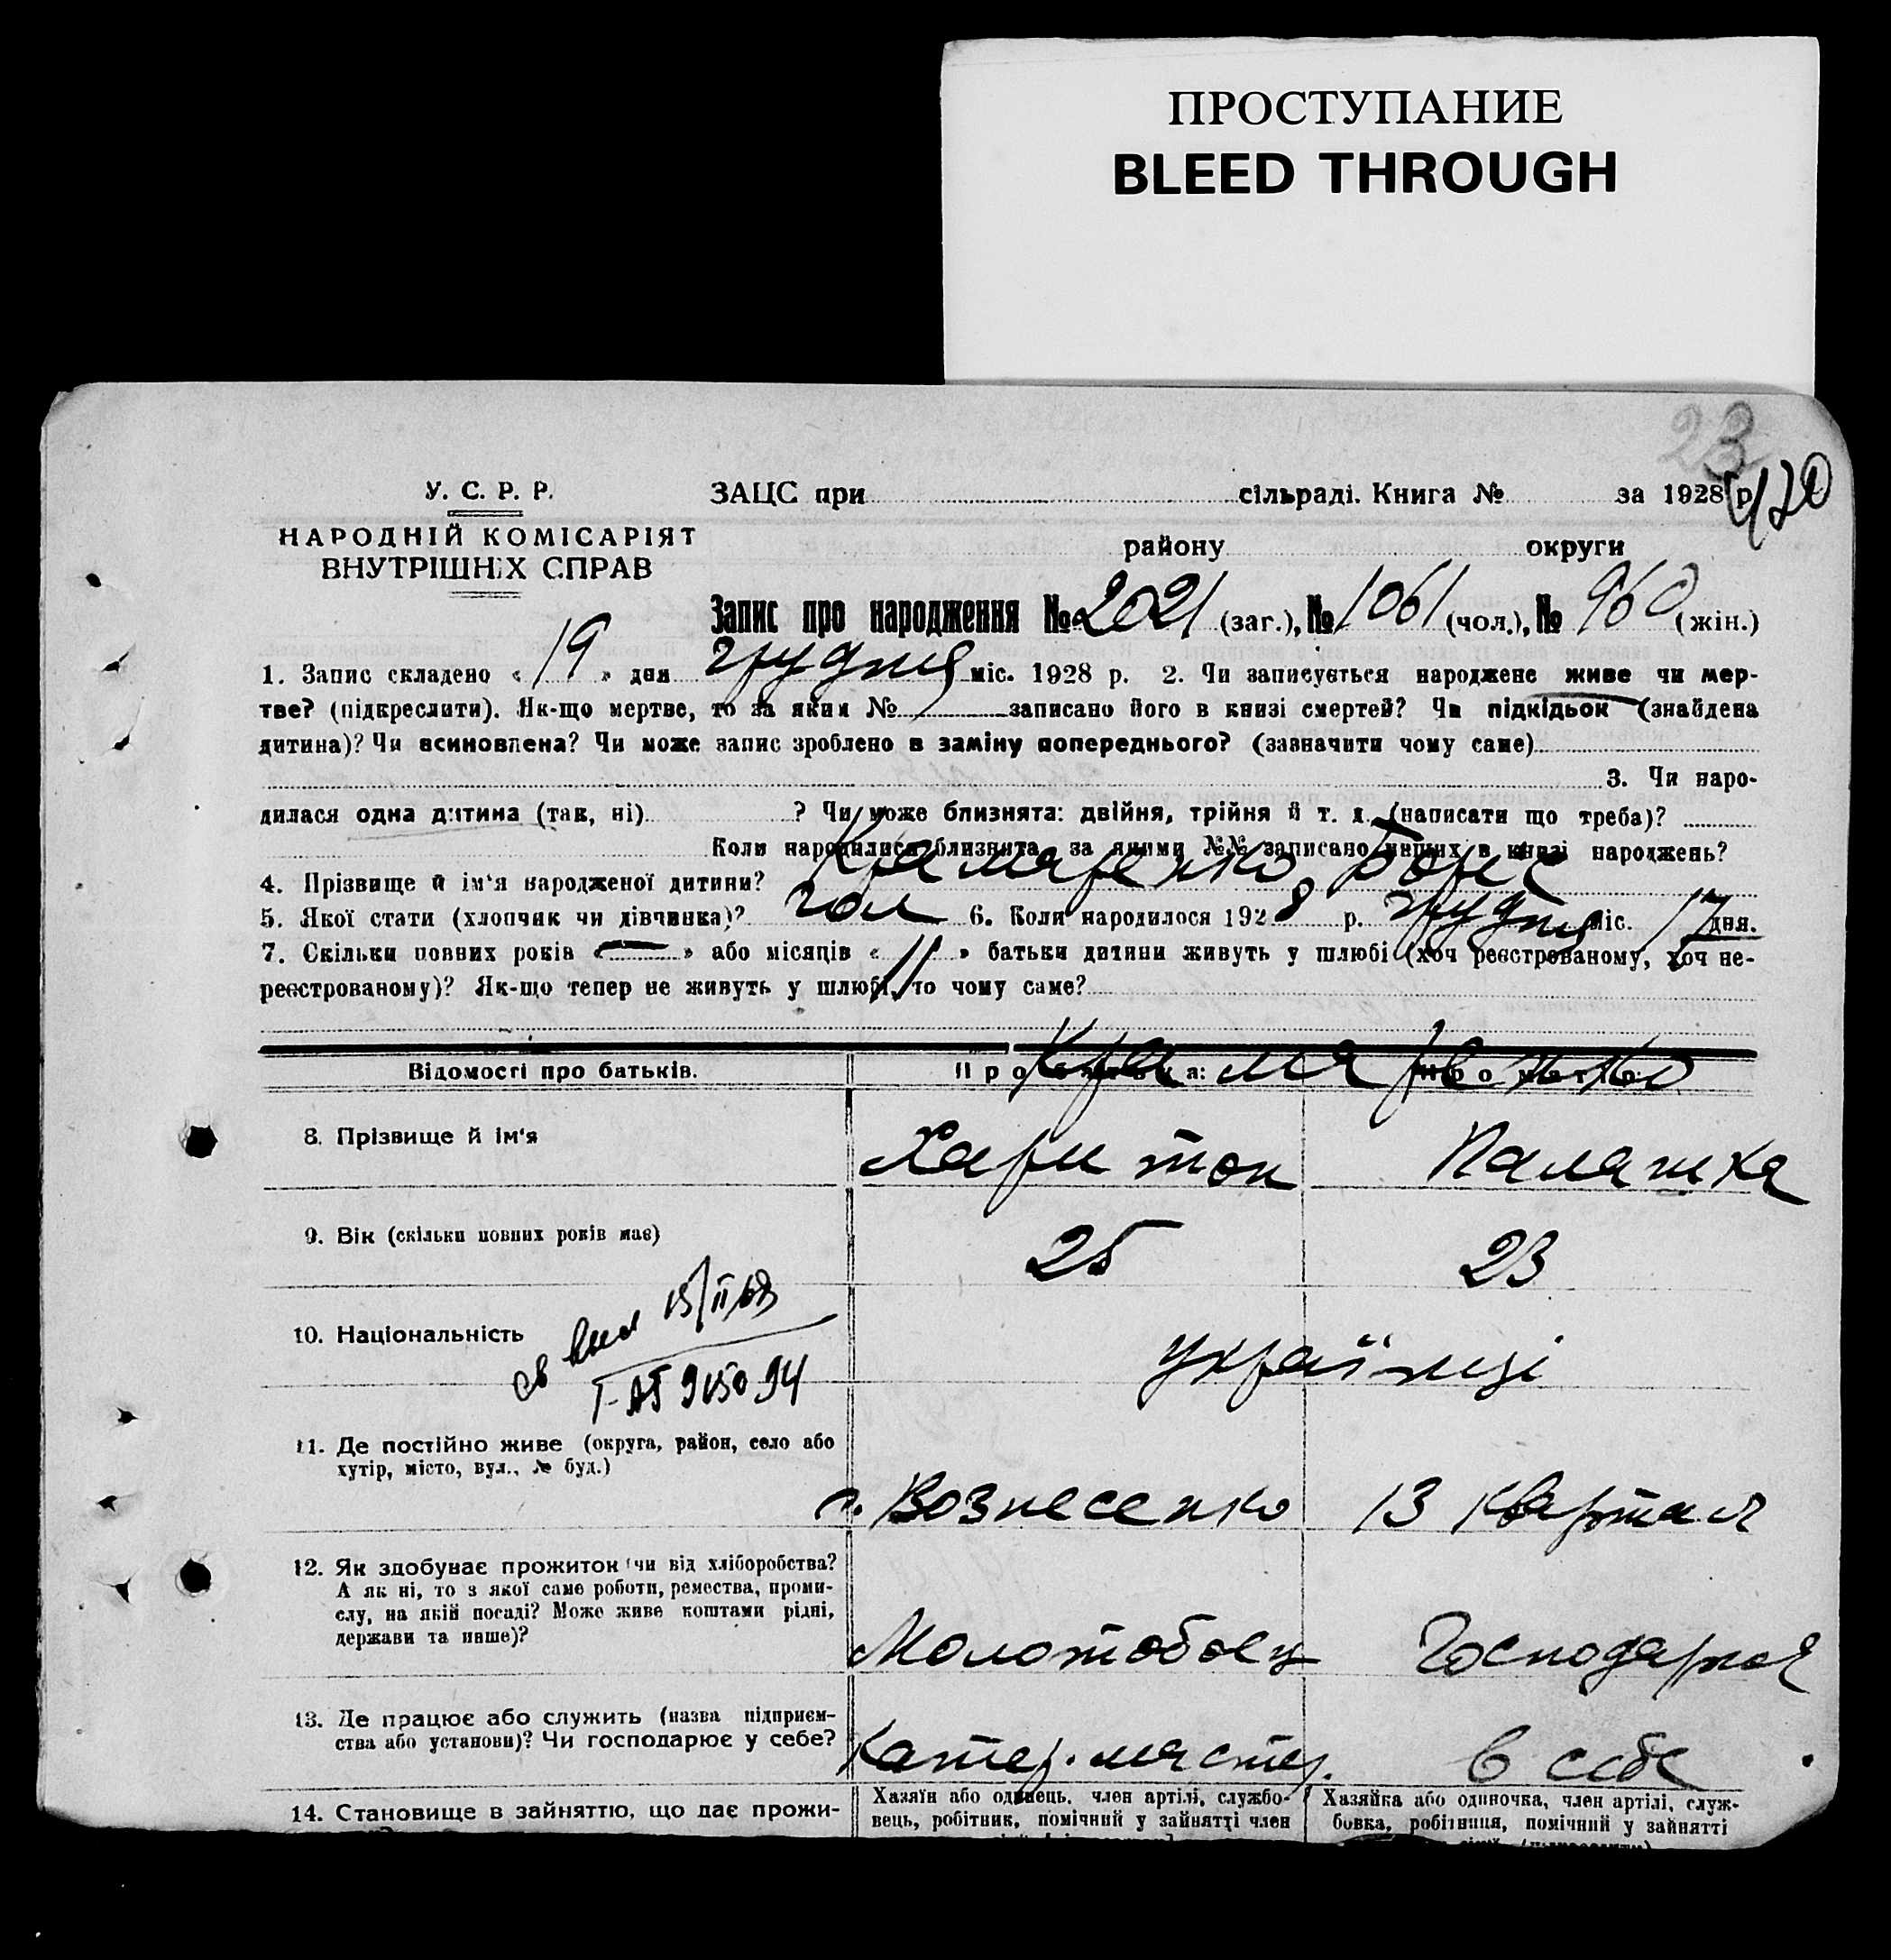 ПРОСТУПАНИЕ
BLEED THROUGH
23
У. С. Р. Р.
НАРОДНІЙ КОМІСАРІЯТ
ВНУТРІШНІХ СПРАВ
ЗАЦС при сільраді. Книга № за 1928 р.
району округи
Запис про народження № 2021 (заг.), № 1061 (чол.), № 960 (жін.)
1. Запис складено « 19 » дня грудня міс. 1928 р. 2. Чи записується народжене живе чи мер-
тве? (підкреслити). Як-що мертве, то за яким № записано його в книзі смертей? Чи підкідьок (знайдена
дитина)? Чи всиновлена? Чи може запис зроблено в заміну попереднього? (зазначити чому саме)
3. Чи наро-
дилася одна дитина (так, ні) ? Чи може близнята: двійня, трійня й т. д. (написати що треба)?
Коли народилися близнята, за якими №№ записано инших в книзі народжень?
4. Прізвище й ім'я народженої дитини? Крамаренко Борис
5. Якої стати (хлопчик чи дівчинка)? чол 6. Коли народилося 1928 р. грудня міс. 17 дня.
7. Скільки повних років « — » або місяців « 11 » батьки дитини живуть у шлюбі (хоч реєстрованому, хоч не-
реєстрованому)? Як-що тепер не живуть у шлюбі, то чому саме?
Відомості про батьків. Про батька: Про матір:
Крамаренко
8. Прізвище й ім'я Харитон Палажка
9. Вік (скільки повних років має) 25 23
10. Національність українці
11. Де постійно живе (округа, район, село або
хутір, місто, вул., № буд.)
с. Вознесенко 13 квартал
12. Як здобуває прожиток (чи від хліборобства?
А як ні, то з якої саме роботи, ремества, проми-
слу, на якій посаді? Може живе коштами рідні,
держави та инше)?
Молотобоец Господарка
13. Де працює або служить (назва підприєм-
ства або установи)? Чи господарює у себе?
Катер. мастер. в себе
14. Становище в зайняттю, що дає прожи-
Хазяїн або одинець, член артілі, службо-
вець, робітник, помічний у зайнятті член
Хазяйка або одиночка, член артілі, служ-
бовка, робітниця, помічний у зайнятті